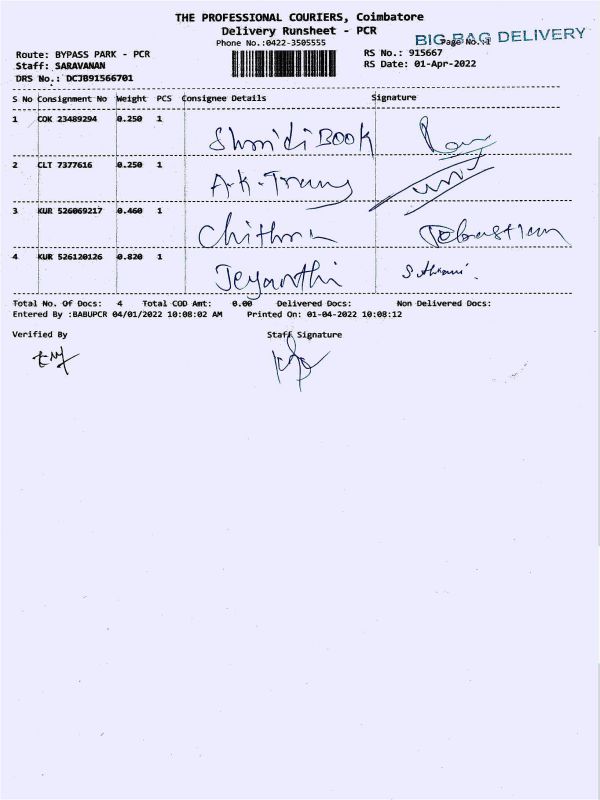 THE PROFESSIONAL COURIERS, Coimbatore
Delivery Runsheet - PCR
Phone No.:0422-3505555
BIG BAG DELIVERY
Page No.:1
Route: BYPASS PARK - PCR
RS No.: 915667
Staff: SARAVANAN
RS Date: 01-Apr-2022
DRS No.: DCJB91566701
S No Consignment No Weight PCS Consignee Details Signature
1 COK 23489294 0.250 1 BOOK
2 CLT 7377616 0.250 1 A.K.
3 KUR 526069217 0.460 1
4 KUR 526120126 0.820 1 Jeyanthi
Total No. Of Docs: 4 Total COD Amt: 0.00 Delivered Docs: Non Delivered Docs:
Entered By :BABUPCR 04/01/2022 10:08:02 AM Printed On: 01-04-2022 10:08:12
Verified By Staff Signature